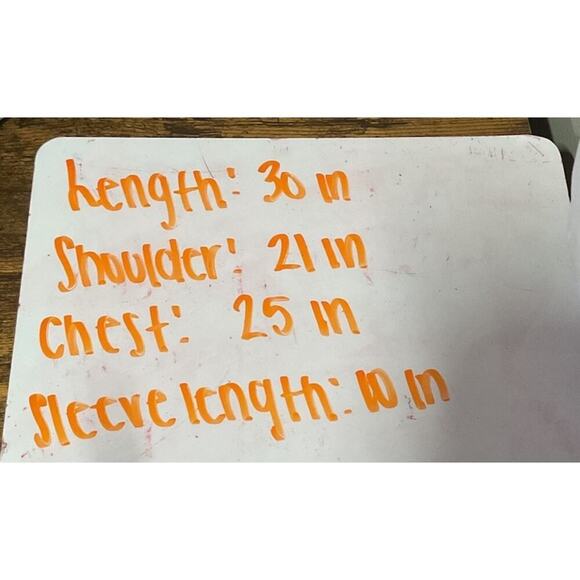 Length: 30 in
Shoulder: 21 in
Chest: 25 in
Sleeve length: 10 in